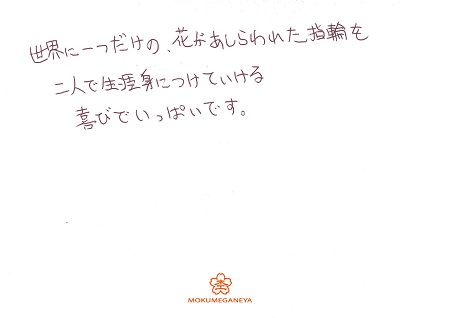 世界に一つだけの、花があしらわれた指輪を
二人で生涯身につけていける
喜びでいっぱいです。
MOKUMEGANEYA